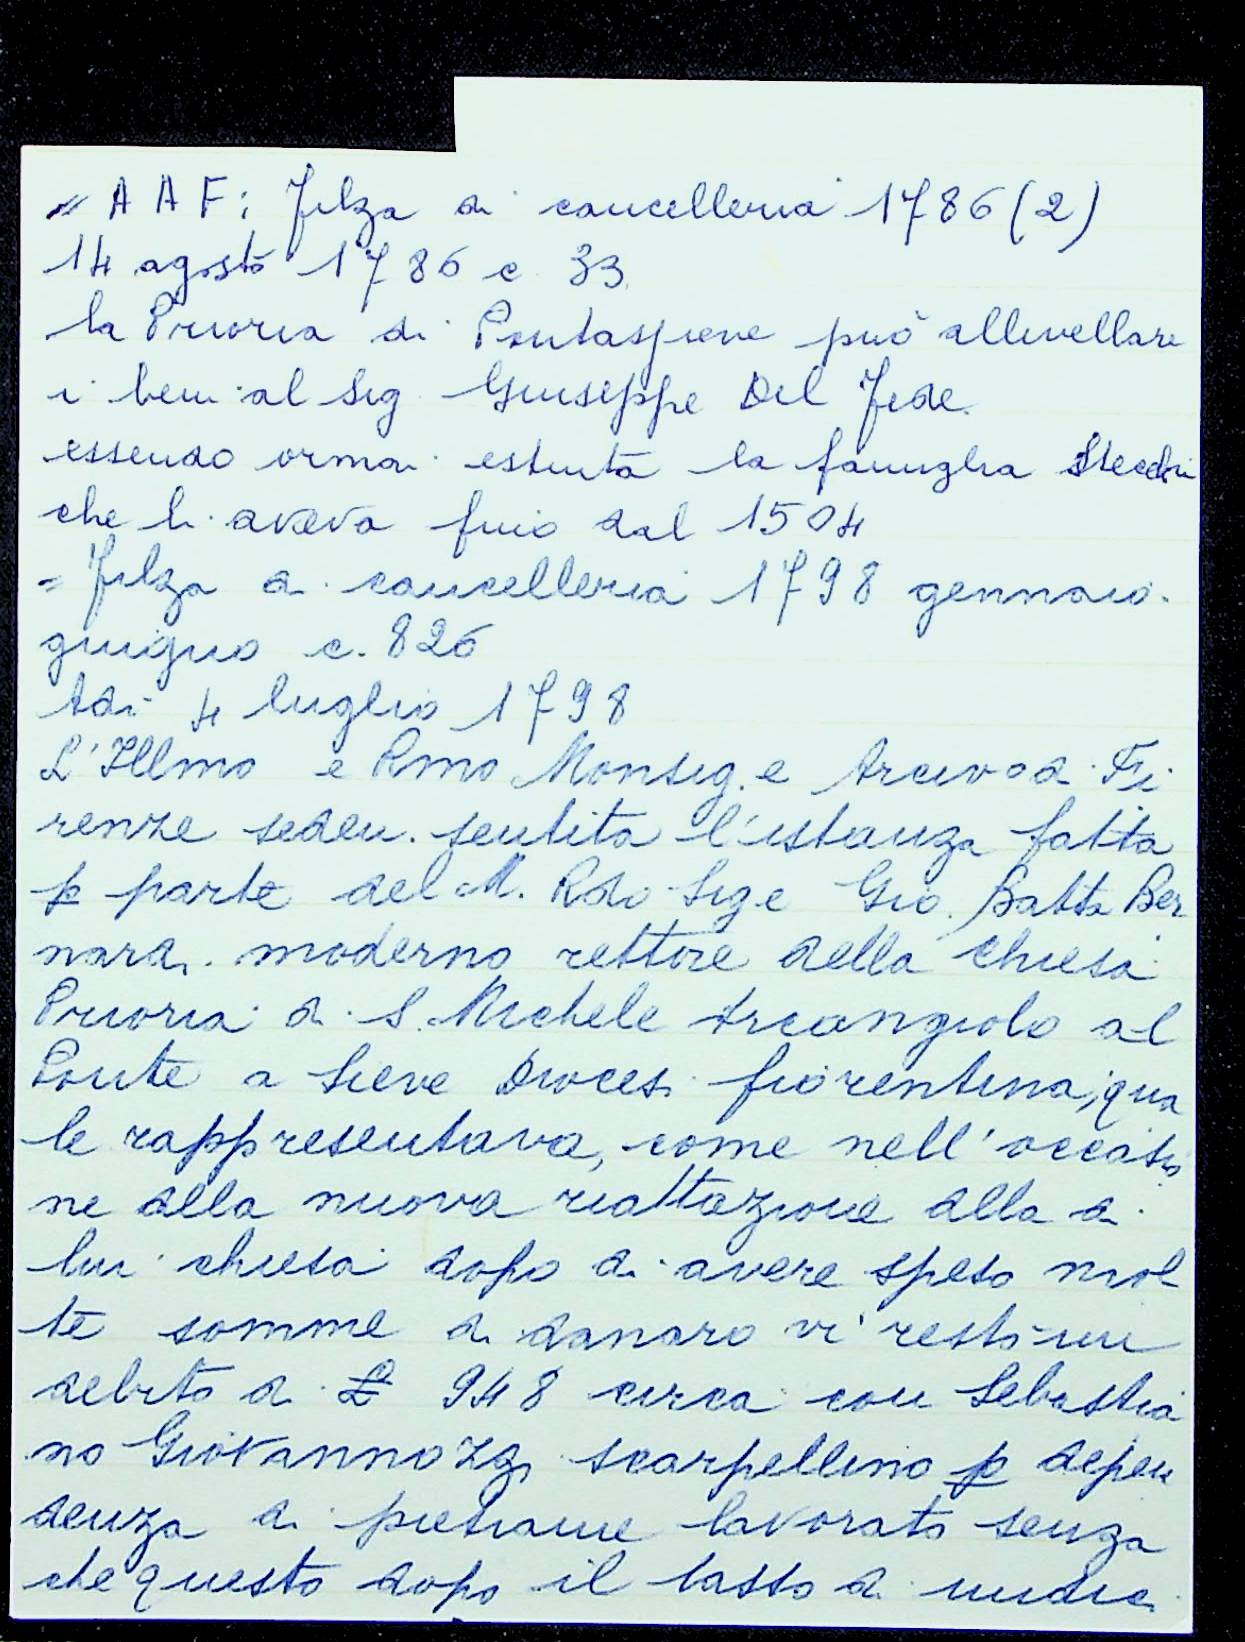 " A A F: Filza di cancelleria 1786 (2)
14 agosto 1786 c 33
la Prioria di Pontassieve può allivellare
i beni al Sig Giuseppe Del Fede.
essendo ormai estinta la famiglia Stecchi
che li aveva fino dal 1504
= Filza di cancelleria 1798 gennaio-
giugno c. 826
Adì 4 luglio 1798
L'Illmo e Rmo Monsig.e Arcivo di Fi
renze seden. sentita l'istanza fatta
p parte del M. Rdo Sig.e Gio. Batta Ber
nardi moderno rettore della chiesa
Prioria di S. Michele Arcangiolo al
Ponte a Sieve Diocesi fiorentina, qua
le rappresentava, come nell'occasio
ne della nuova riattazione alla di
lui chiesa dopo di avere speso mol
te somme di danaro vi restò un
debito di £ 948 circa con Sebastia
no Giovannozzi scarpellino p depen
denza di pietrame lavorato senza
che questo dopo il lasso di undici